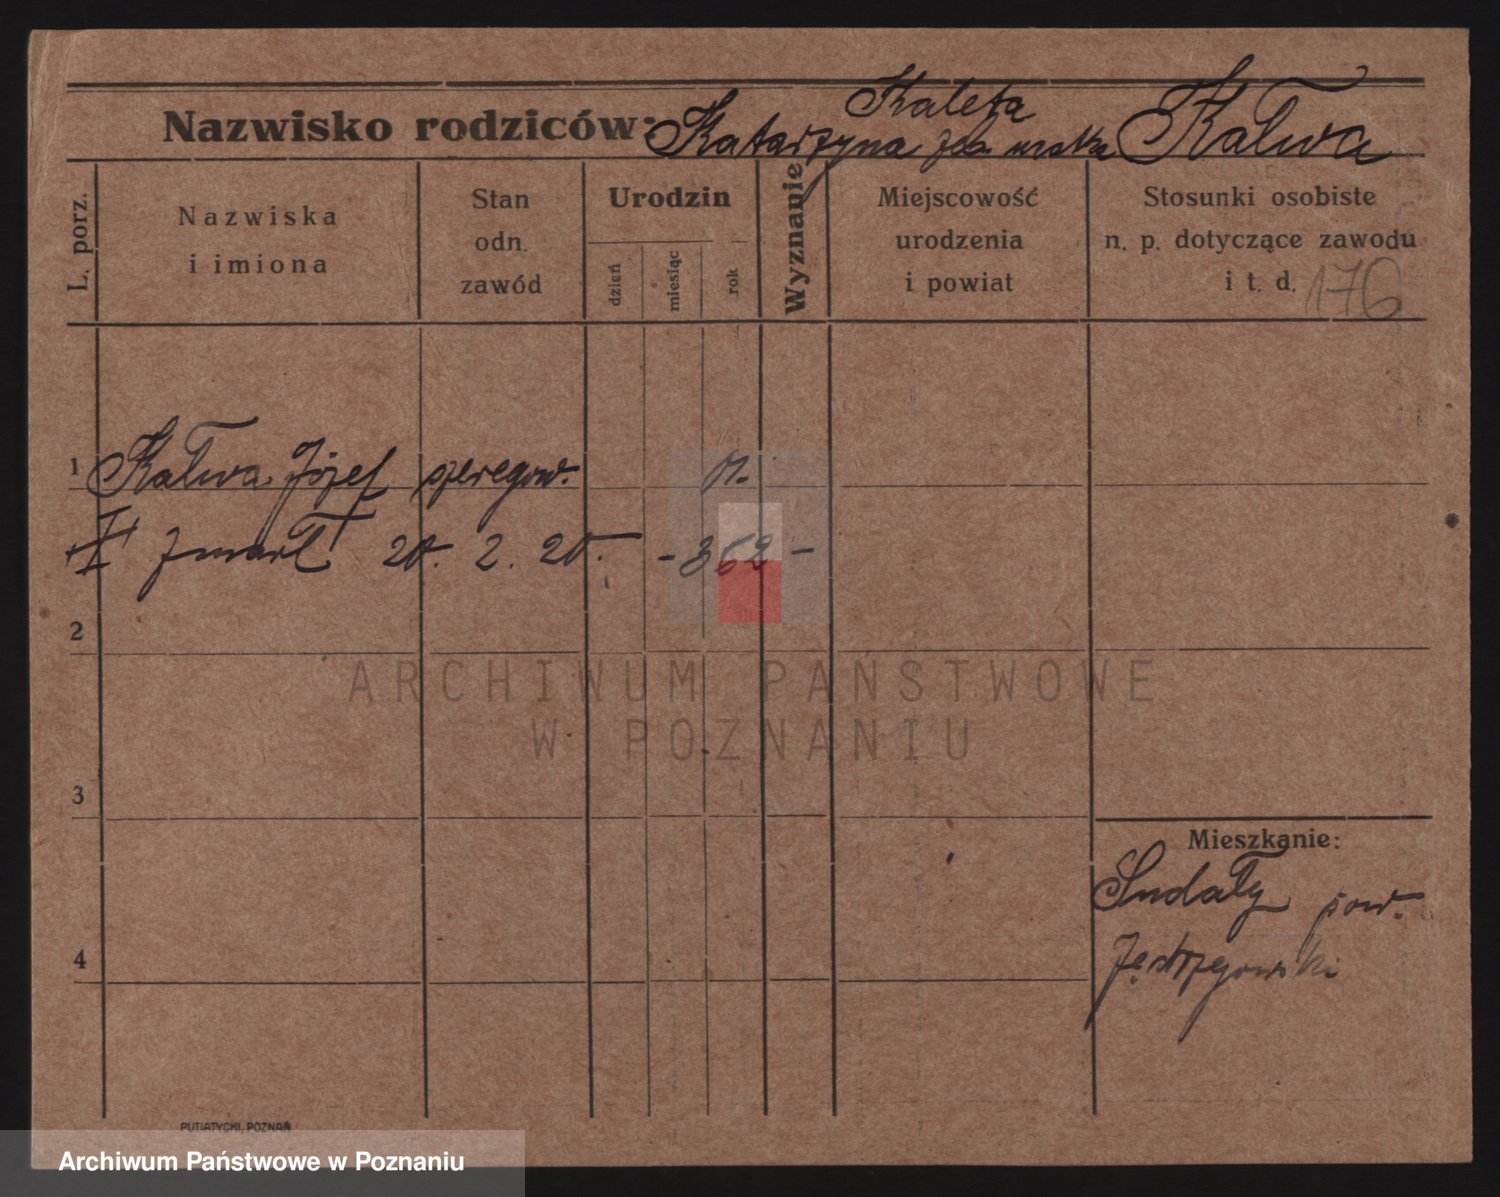 Kaleta
Nazwisko rodziców: Katarzyna Kałwa
L. porz.
Nazwiska
i imiona
Stan
odn.
zawód
Urodzin
dzień
miesiąc
rok
Wyznanie
Miejscowość
urodzenia
i powiat
Stosunki osobiste
n. p. dotyczące zawodu
i t. d. 176
1 Kałwa Józef szeregow.
zmarł 20. 2. 20. - 362 -
2
ARCHIWUM PAŃSTWOWE
W POZNANIU
3
Mieszkanie:
pow.
4
PUTIATYCKI, POZNAŃ
Archiwum Państwowe w Poznaniu